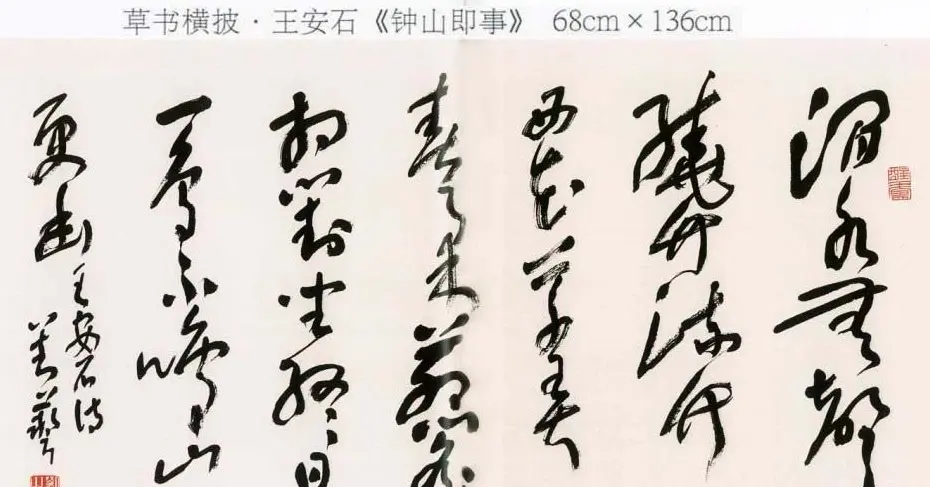 草书横披·王安石《钟山即事》 68cm×136cm
澗水無聲
繞竹流竹
西花草弄
春柔茅簷
相對坐終日
一鳥不鳴山
更幽
王安石詩